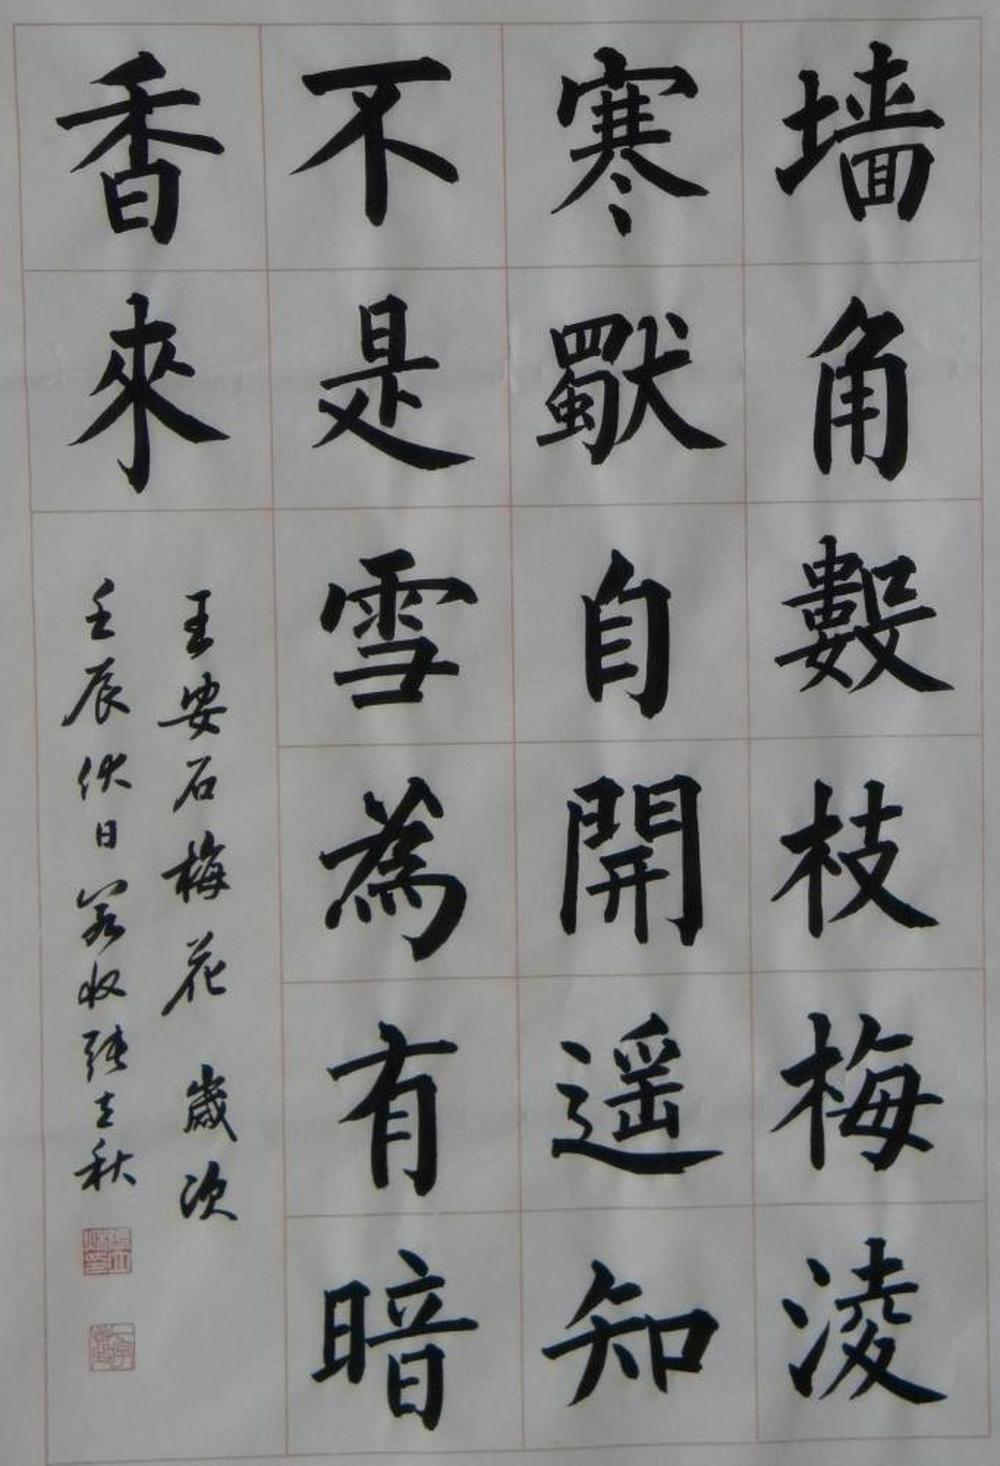 墙角數枝梅淩
寒獨自開遥知
不是雪為有暗
香來
王安石梅花 歲次
壬辰伏日 收張立秋